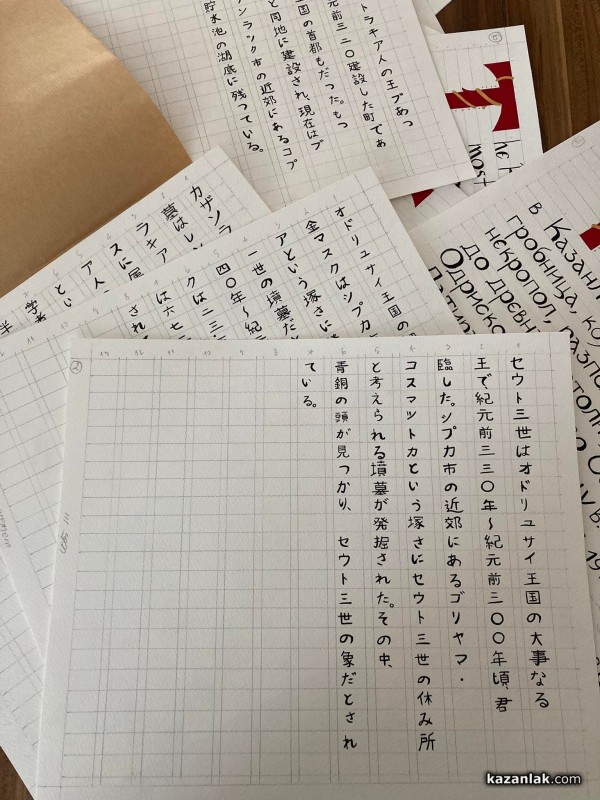 セウト三世はオドリュサイ王国の大事なる
王で、紀元前三三〇年～紀元前三〇〇年頃、君
臨した。シプカ市の近郊にあるゴリヤマ・
コスマットカという塚さにセウト三世の休み所
と考えられる墳墓が発掘された。その中、
青銅の頭が見つかり、セウト三世の象だとされ
ている。
オドリュサイ王国の
金マスクはシプカ
アという塚さに
一世の墳墓だ
四〇年～紀元
クは二三
は六七
され
カザンラ
墓はし
ラキア
スに属
ア人
とい
学者
半
トラキア人の王プあつ
元前三二〇建設した町であ
国の首都もだつた。もつ
と同地に建設され、現在はブ
ンランク市の近郊にあるコプ
貯水池の湖底に残つている。
Т
ле
most
в Казанл
гробница, ко
некропол, разпо
до древн
Одриско
kazanlak.com